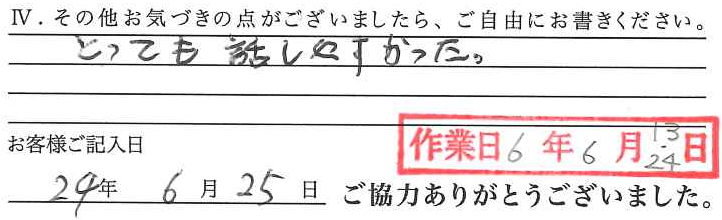 Ⅳ．その他お気づきの点がございましたら、ご自由にお書きください。
とっても話しやすかった。
お客様ご記入日
作業日6年6月13.24日
24年 6月25日 ご協力ありがとうございました。